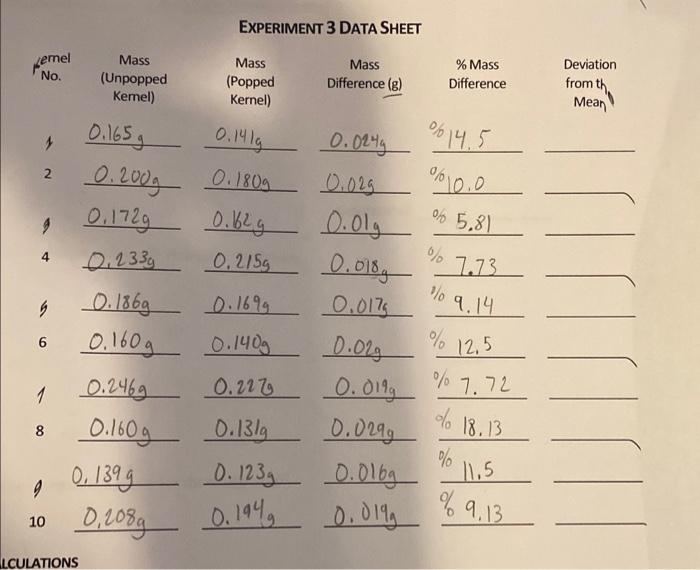 EXPERIMENT 3 DATA SHEET
Kernel No. Mass (Unpopped Kernel) Mass (Popped Kernel) Mass Difference (g) % Mass Difference Deviation from th Mean
1 0.165g 0.141g 0.024g %14.5
2 0.200g 0.180g 0.02g %10.0
3 0.172g 0.162g 0.01g % 5.81
4 0.233g 0.215g 0.018g % 7.73
5 0.186g 0.169g 0.017g % 9.14
6 0.160g 0.140g 0.02g % 12.5
7 0.246g 0.227g 0.019g % 7.72
8 0.160g 0.131g 0.029g % 18.13
9 0.139g 0.123g 0.016g % 11.5
10 0,208g 0.194g 0.019g % 9.13
LCULATIONS